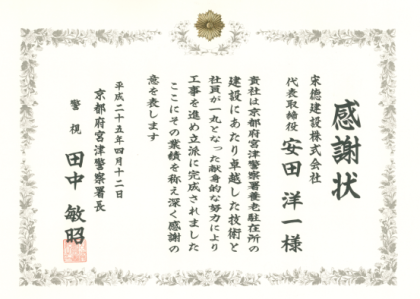 感謝状
宋徳建設株式会社
代表取締役 安田洋一様
貴社は京都府宮津警察署養老駐在所の
建設にあたり卓越した技術と
社員が一丸となった献身的な努力により
工事を進め立派に完成されました
ここにその業績を称え深く感謝の
意を表します
平成二十五年四月十二日
京都府宮津警察署長
警視 田中敏昭